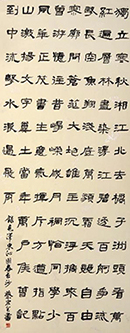 獨立寒秋湘江北去橘子洲頭看萬山
紅遍層林盡染漫江碧透百舸爭流鷹
擊長空魚翔淺底萬類霜天競自由悵
寥廓問蒼茫大地誰主沉浮攜來百侶
曾遊憶往昔崢嶸歲月稠恰同學少年
風華正茂書生意氣揮斥方遒指點江
山激揚文字糞土當年萬戶侯曾記否
到中流擊水浪遏飛舟
錄毛澤東沁園春長沙